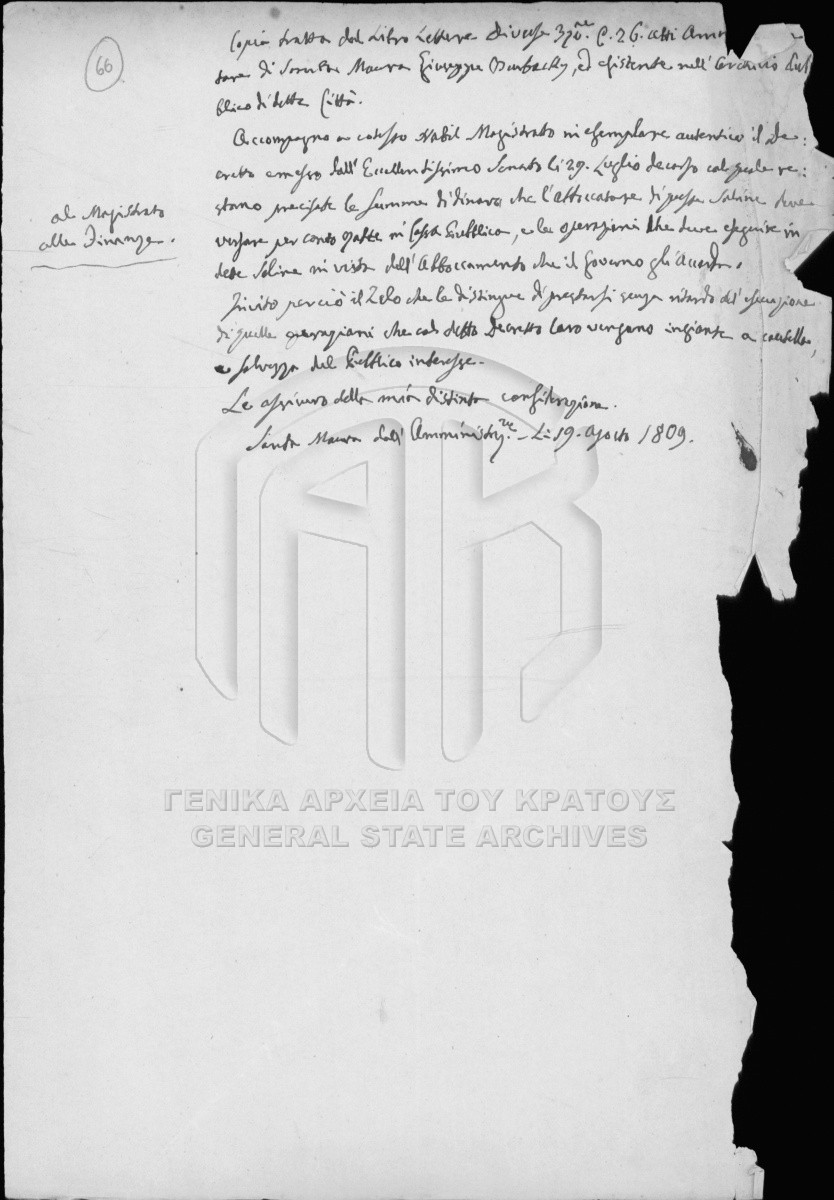 66
Copia tratta dal Libro Lettere diverse C. 26. atti Amm
di Santa Maura Giuseppe ed esistente nell' Arcivio Pub
blico di detta Città.
al Magistrato
alle Finanze.
Accompagno a codesto Nobil Magistrato in esemplare autentico il De:
cretto emesso dall' Eccellentissimo Senato li 29. Luglio decorso col quale re:
stano precisate le summe di dinaro che l'abboccatore di queste Saline deve
versare per conto in Cassa Pubblica, e le operazioni che deve eseguire in
dette Saline in vista dell' Abboccamento che il Governo gli accorda.
Invito perciò il Zelo che la distingue di prestarsi senza ritardo all' esecuzione
di quelle operazioni che col detto Decretto loro vengono ingionte a cautella,
e salvezza del Pubblico interesse.
Le assicuro della mia distinta considerazione.
Santa Maura dall' Amministrz.ne – Li 19. Agosto 1809.
ΓΕΝΙΚΑ ΑΡΧΕΙΑ ΤΟΥ ΚΡΑΤΟΥΣ
GENERAL STATE ARCHIVES